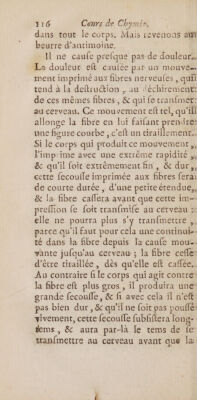 116 Cours de Chymie.
dans tout le corps. Mais revenons au
beurre d'antimoine.
Il ne cause presque pas de douleur.
La douleur est causée par un mouve-
ment imprimé aux fibres nerveuses, qui
tend à la destruction, au déchirement
de ces mêmes fibres, & qui se transmet
au cerveau. Ce mouvement est tel, qu'il
allonge la fibre en lui faisant prendre
une figure courbe, c'est un tiraillement.
Si le corps qui produit ce mouvement,
l'imprime avec une extrême rapidité,
& qu'il soit extrêmement fin, & dur,
cette secousse imprimée aux fibres sera
de courte durée, d'une petite étendue,
& la fibre cassera avant que cette im-
pression se soit transmise au cerveau :
elle ne pourra plus s'y transmettre,
parce qu'il faut pour cela une continui-
té dans la fibre depuis la cause mou-
vante jusqu'au cerveau ; la fibre cesse
d'être tiraillée, dès qu'elle est cassée.
Au contraire si le corps qui agit contre
la fibre est plus gros, il produira une
grande secousse, & si avec cela il n'est
pas bien dur, & qu'il ne soit pas poussé
vivement, cette secousse subsistera long-
tems, & aura par-là le tems de se
transmettre au cerveau avant que la